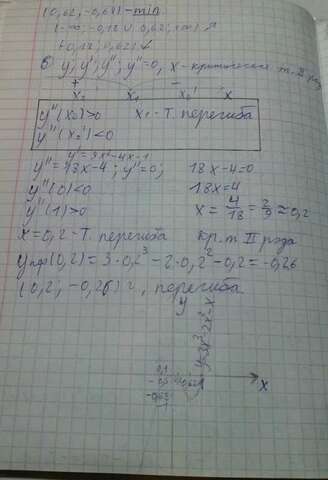 (0,62; -0,68) - min
(-∞; -0,18 ∪ 0,62; +∞) ↗
(-0,18; 0,62) ↘
6) y, y', y'', y''=0, x - критическая т. II рода
+ −
x₂ x₁ x₂' x
y''(x₂)>0 x₁ - т. перегиба
y''(x₂')<0
y'=9x²-4x-1
y''=18x-4; y''=0; 18x-4=0
y''(0)<0 18x=4
y''(1)>0 x=4/18=2/9≈0,2
x=0,2 - т. перегиба кр. т II рода
(0,2)=3·0,2³-2·0,2²-0,2=-0,26
(0,2; -0,26) перегиба
y
y=3x³-2x²-x
x